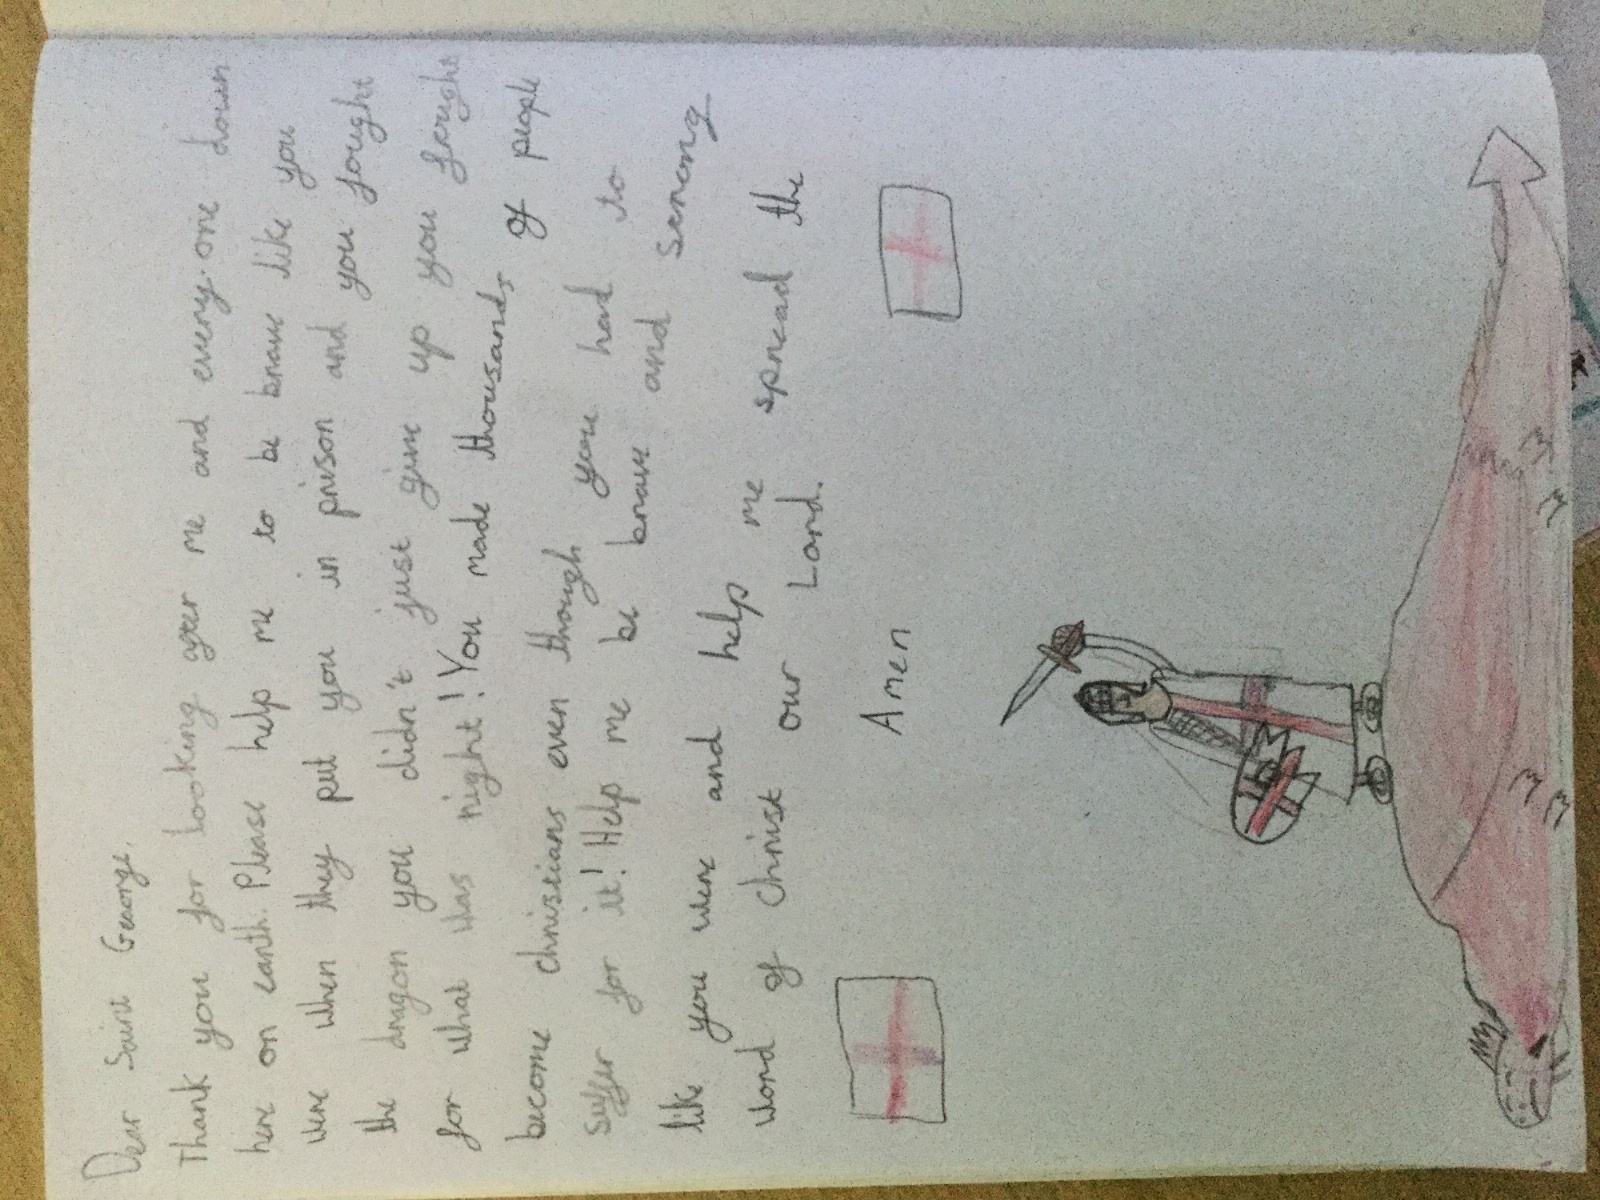 Dear Saint George,
Thank you for looking after me and every one down
here on earth. Please help me to be brave like you
were when they put you in prison and you fought
the dragon you didn't just give up you fought
for what was right! You made thousands of people
become christians even though you had to
suffer for it! Help me be brave and strong
like you were and help me spread the
word of christ our Lord.
Amen